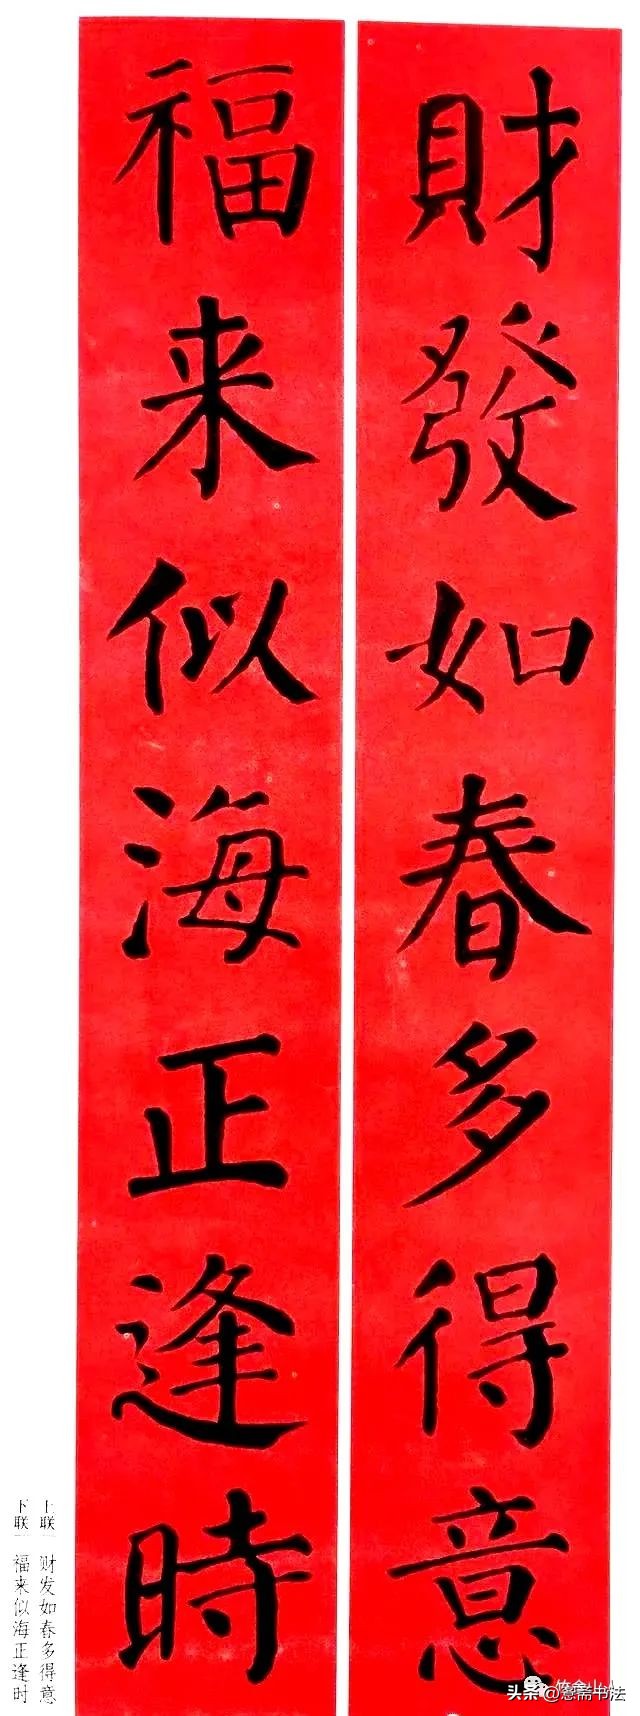 財發如春多得意
福来似海正逢時
上联 财发如春多得意
下联 福来似海正逢时
头条@惫斋书法